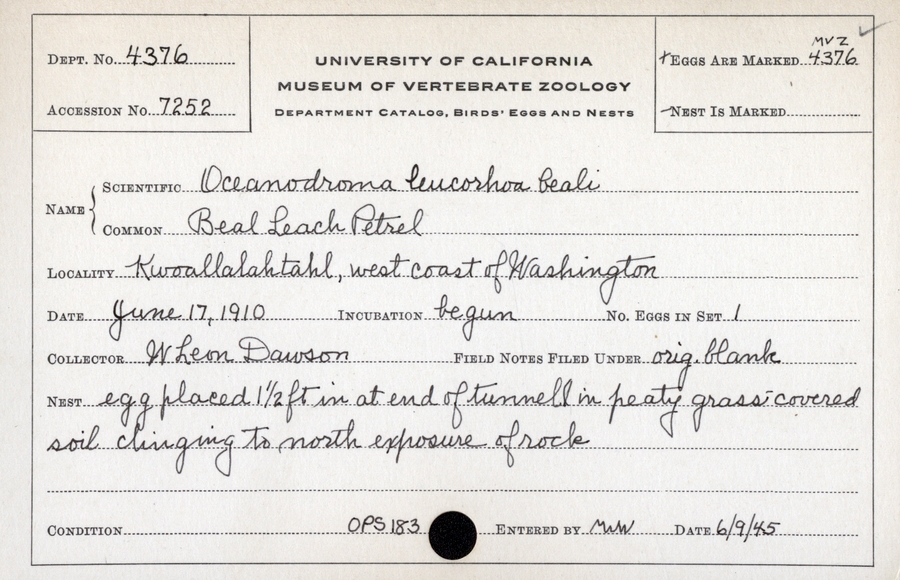 MVZ
Dept. No. 4376
UNIVERSITY OF CALIFORNIA
+Eggs Are Marked 4376
MUSEUM OF VERTEBRATE ZOOLOGY
Accession No. 7252
Department Catalog, Birds' Eggs and Nests
-Nest Is Marked
Name { Scientific Oceanodroma leucorhoa beali
Common Beal Leach Petrel
Locality Kwoallalahtahl, west coast of Washington
Date June 17, 1910 Incubation begun No. Eggs in Set 1
Collector W Leon Dawson Field Notes Filed Under orig. blank
Nest egg placed 1½ ft in at end of tunnell in peaty grass-covered
soil clinging to north exposure of rock
Condition OPS 183 Entered by MWW Date 6/9/45